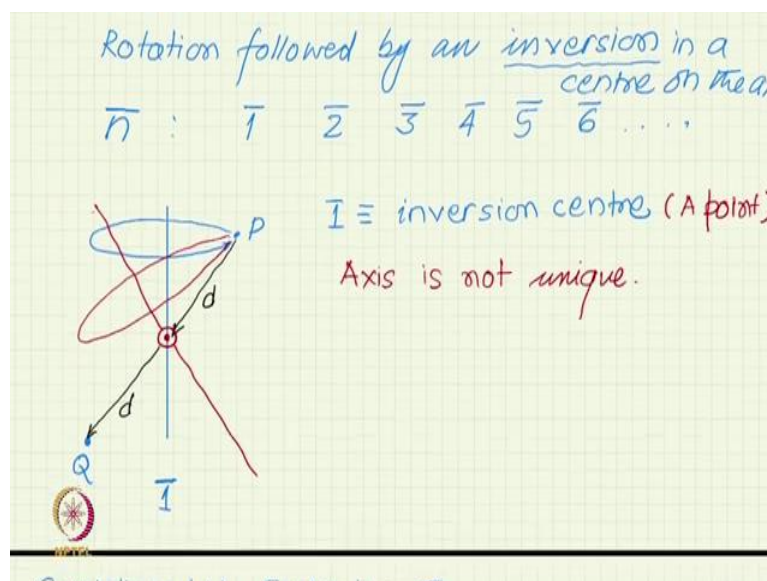 Rotation followed by an inversion in a
centre on the
n̅ : 1̅ 2̅ 3̅ 4̅ 5̅ 6̅ ....
1̅ ≡ inversion centre (A point)
Axis is not unique.
P
d
d
Q
1̅
NPTEL